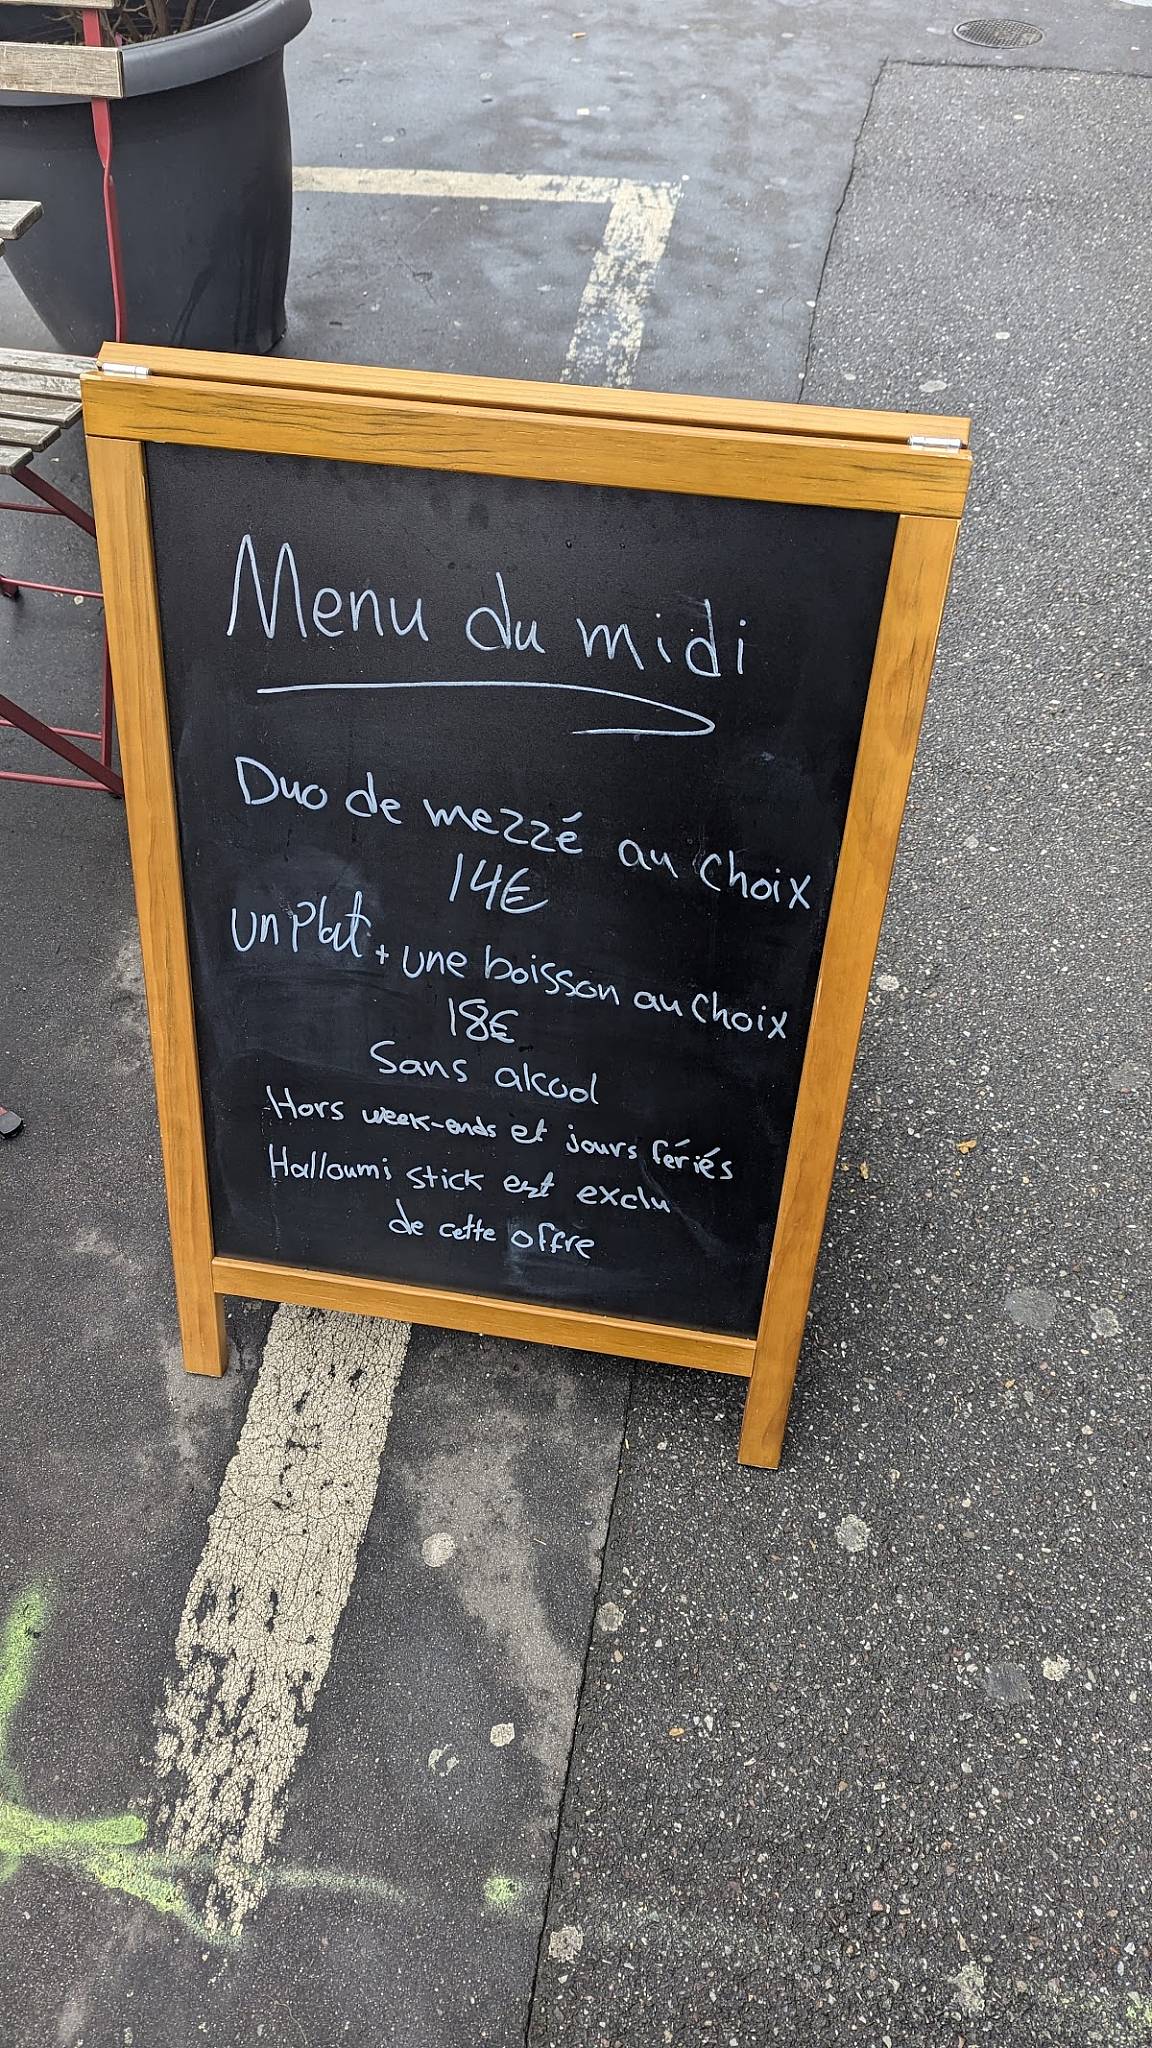 Menu du midi
Duo de mezzé au choix
14€
un Plat + une boisson au choix
18€
Sans alcool
Hors week-ends et jours fériés
Halloumi stick est exclu
de cette offre